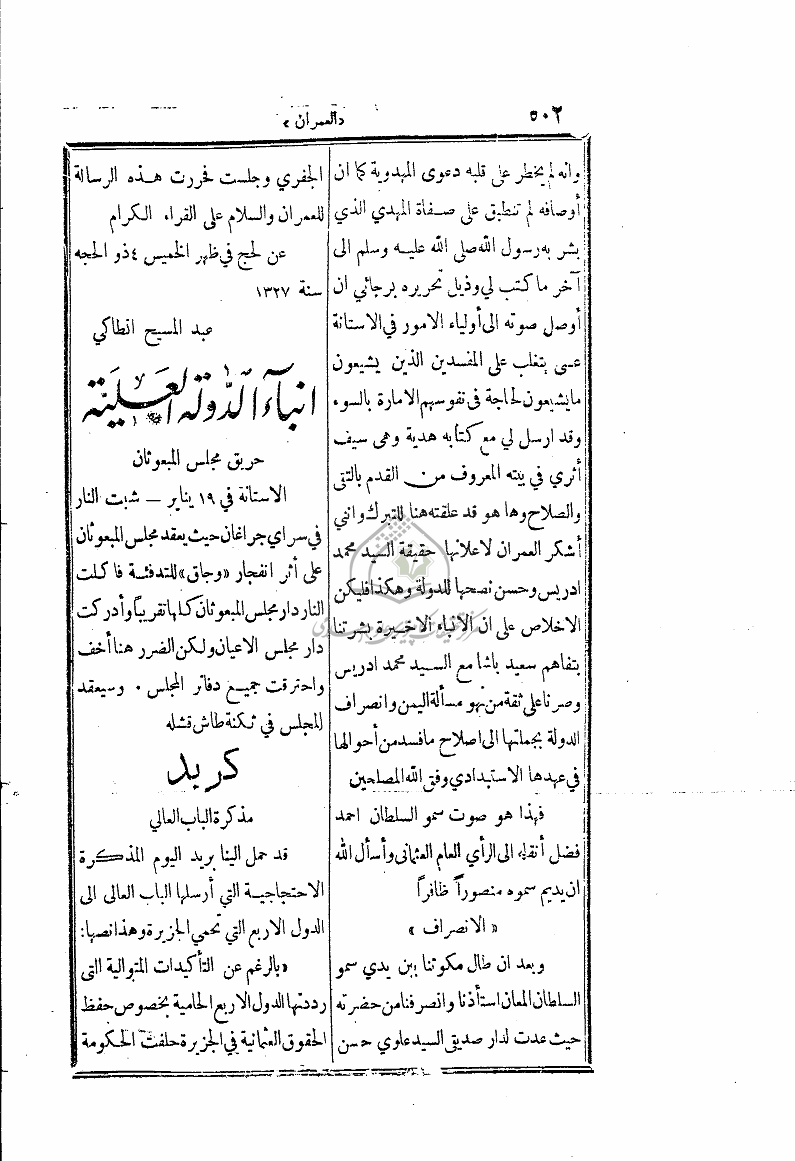 ٥٠٢
«العمران»
وانه لم يخطر على قلبه دعوى المهدوية كما ان
أوصافه لم تنطبق على صفاة المهدي الذي
بشر به رسول الله صلى الله عليه وسلم الى
آخر ما كتب لي وذيل تحريره برجائي ان
أوصل صوته الى أولياء الامور في الاستانة
عسى يتغلب على المفسدين الذين يشيعون
ما يشيعون لحاجة في نفوسهم الامارة بالسوء
وقد ارسل لي مع كتابه هدية وهي سيف
أثري في بيته المعروف من القدم بالتقى
والصلاح وها هو قد علقته هنا للتبرك واني
أشكر العمران لاعلانها حقيقة السيد محمد
ادريس وحسن نصحها للدولة وهكذا فليكن
الاخلاص على ان الانباء الاخيرة بشرتنا
بتفاهم سعيد باشا مع السيد محمد ادريس
وصرنا على ثقة من نهو مسألة اليمن وانصراف
الدولة بجملتها الى اصلاح ما فسد من أحوالها
في عهدها الاستبدادي وفق الله المصلحين
فهذا هو صوت سمو السلطان احمد
فضل أنقله الى الرأي العام العثماني وأسأل الله
ان يديم سموه منصوراً ظافراً
« الانصراف »
وبعد ان طال مكوثنا بين يدي سمو
السلطان المعان استأذنا وانصرفنا من حضرته
حيث عدت لدار صديقي السيد علوي حسن
الجفري وجلست فحررت هذه الرسالة
للعمران والسلام على القراء الكرام
عن لحج في ظهر الخميس ٤ ذو الحجه
سنة ١٣٢٧
عبد المسيح انطاكي
انباء الدولة العلية
حريق مجلس المبعوثان
الاستانة في ١٩ يناير – شبت النار
في سراي جراغان حيث يعقد مجلس المبعوثان
على أثر انفجار «وجاق» للتدفئة فاكلت
النار دار مجلس المبعوثان كلها تقريباً وأدركت
دار مجلس الاعيان ولكن الضرر هنا أخف
واحترقت جميع دفاتر المجلس ٠ وسيعقد
المجلس في ثكنة طاش قشله
كريد
مذكرة الباب العالي
قد حمل الينا بريد اليوم المذكرة
الاحتجاجية التي أرسلها الباب العالى الى
الدول الاربع التي تحمي الجزيرة وهذا نصها:
«بالرغم عن التأكيدات المتوالية التى
رددتها الدول الاربع الحامية بخصوص حفظ
الحقوق العثمانية في الجزيرة حلفت الحكومة